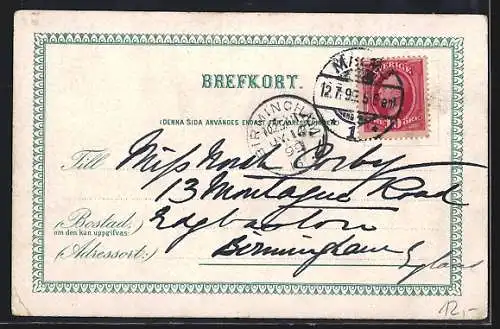 BREFKORT.
SVERIGE
12.7.99.5
BIRMINGHAM
JY 14
99
(DENNA SIDA ANVÄNDES ENDAST
1
Till Miss North Corby
13 Montague Road
(Bostad:
om den kan uppgifvas) Edgbaston
Adressort:) Birmingham
England
12,-